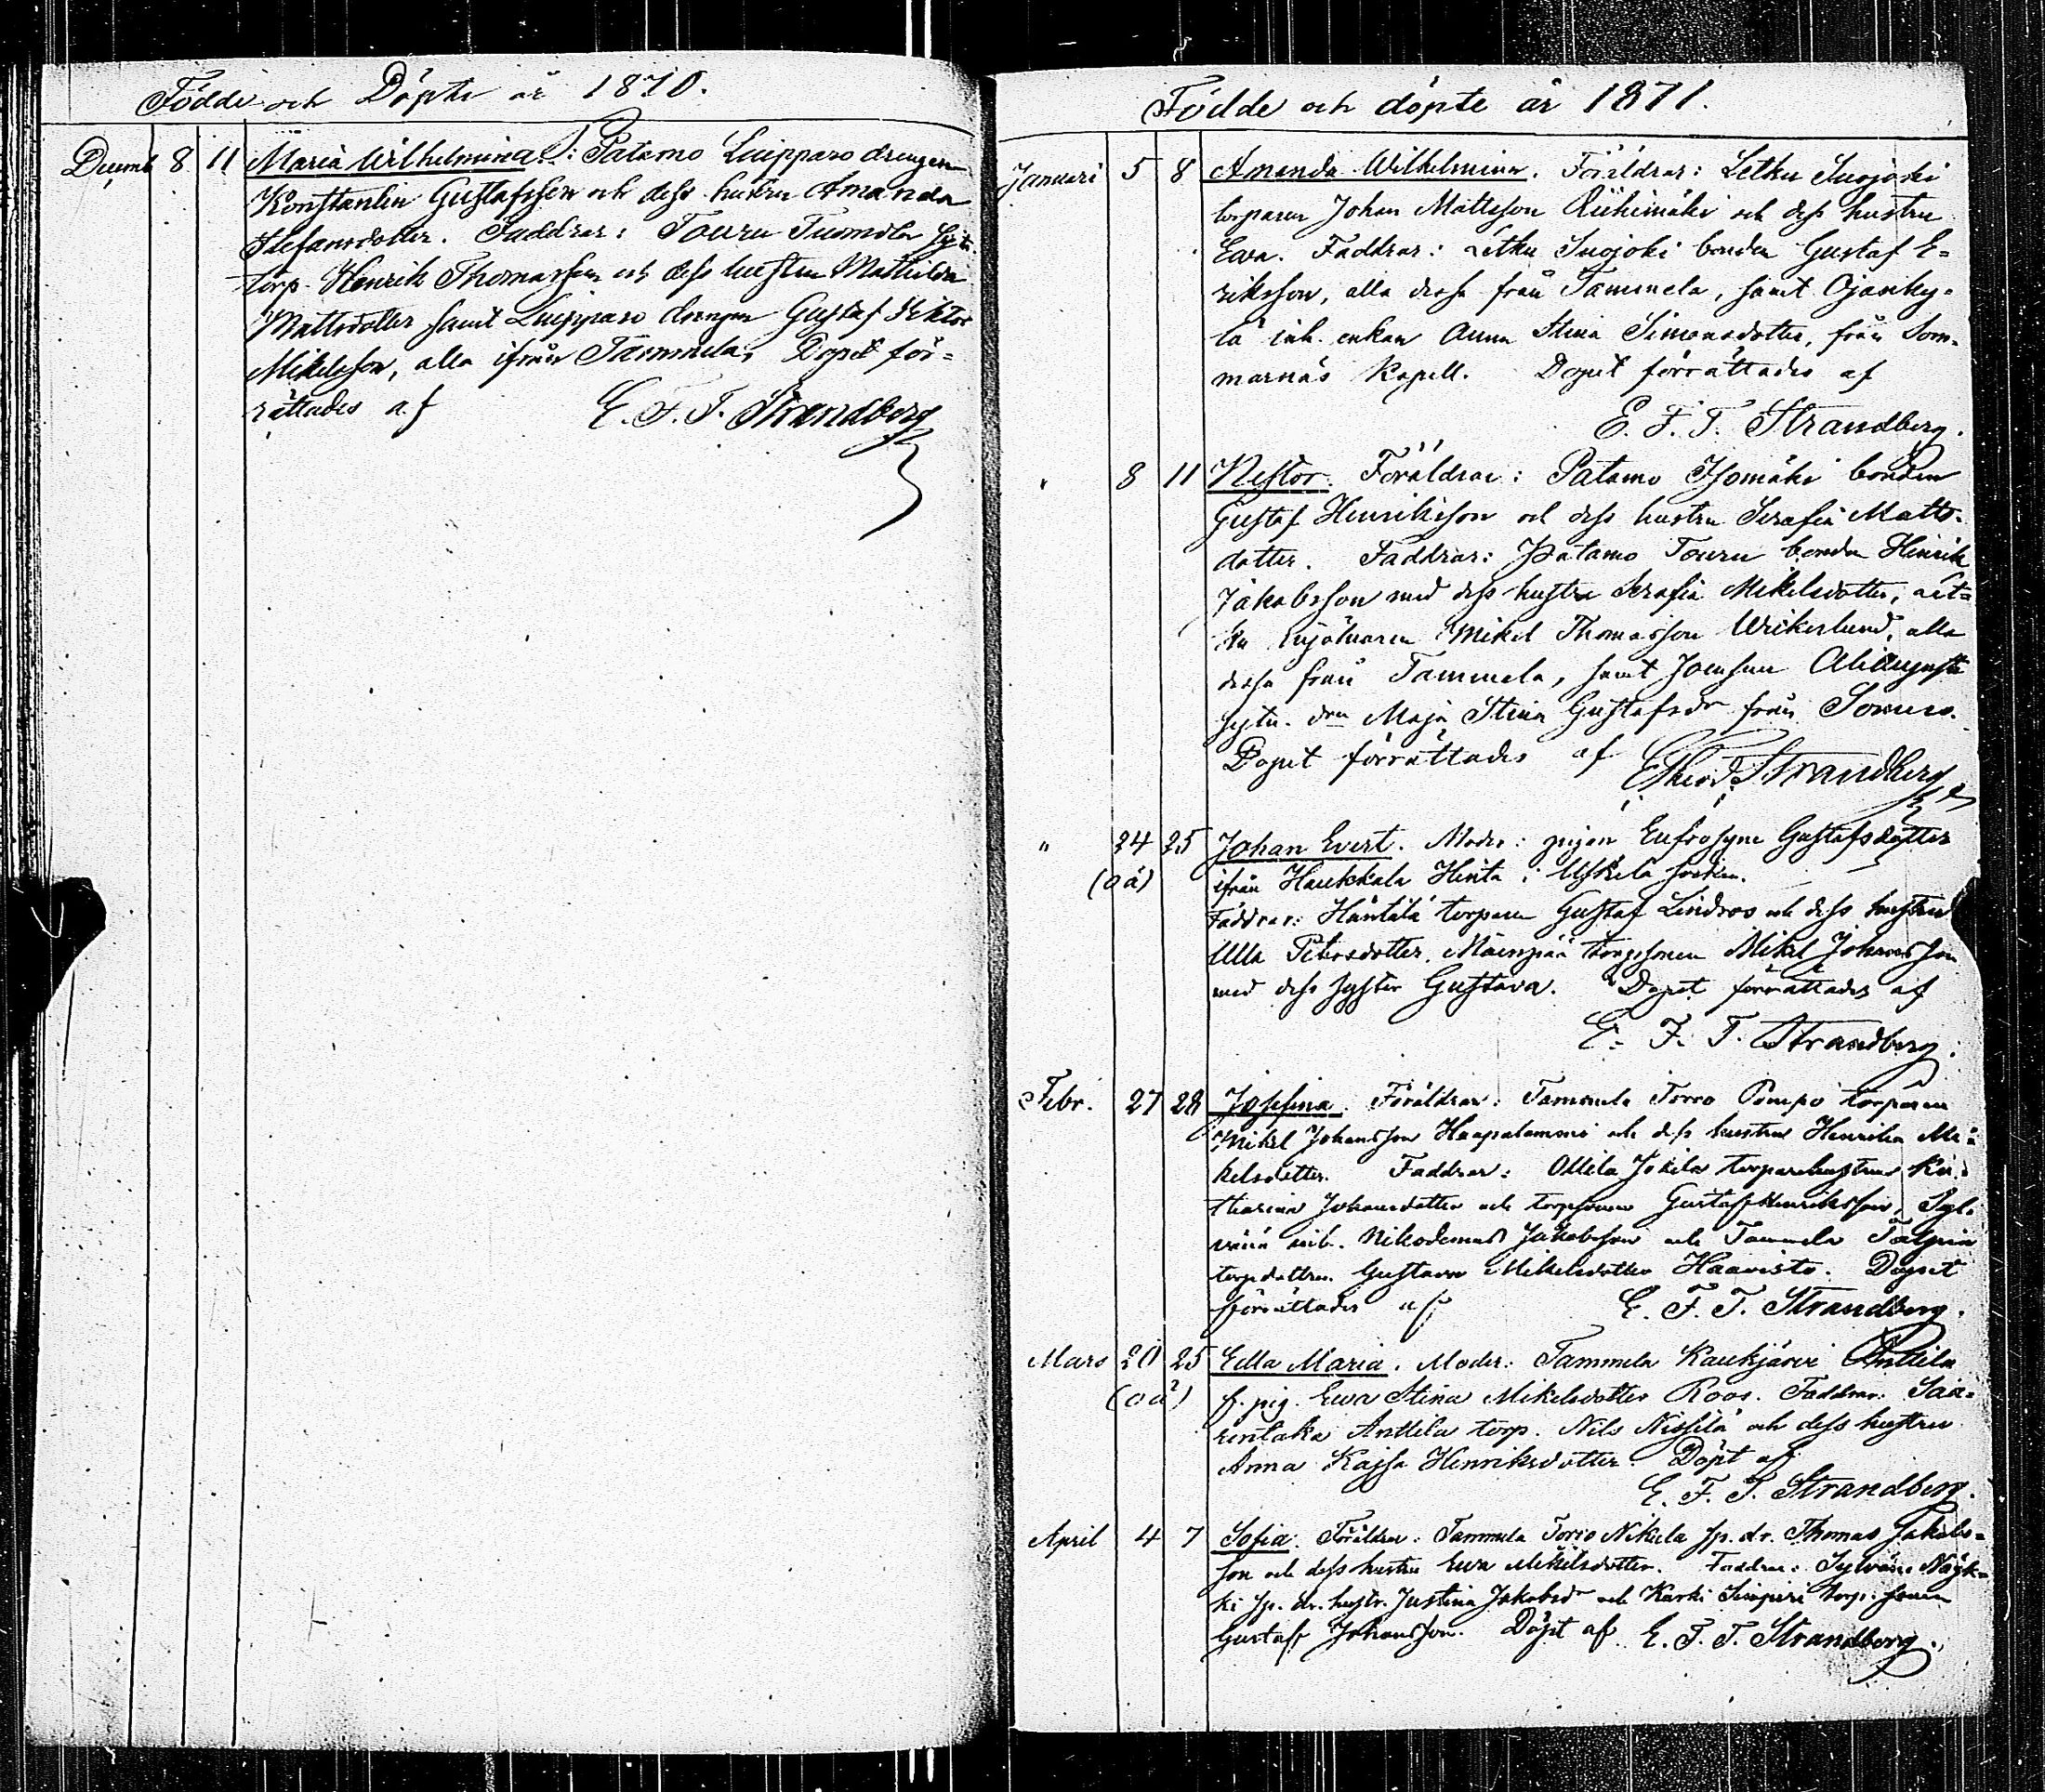 Födde och Döpte år 1870.
Decemb 8 11 Maria Wilhelmina. F: Patamo Luipparo drengen
Konstantin Gustafsson och dess hustru Amanda
Stefansdotter. Faddrar: Touru Tuomola
torp. Henrik Thomasson och dess hustru Mathilda
Mattsdotter samt Luipparo drengen Gustaf Viktor
Mikelsson, alla ifrån Tammela, Dopet för-
rättades af E. F. T. Strandberg
Födde och döpte år 1871.
Januari 5 8 Amanda Wilhelmina. Föräldrar: Letku Suojoki
torparen Johan Mattsson Riihimäki och dess hustru
Eva. Faddrar: Letku Suojoki bonden Gustaf E-
riksson, alla dessa från Tammela, samt Ojanky-
lä inh. enkan Anna Stina Simonsdotter, från Som-
marnäs Kapell. Dopet förrättades af
E. F. T. Strandberg.
" 8 11 Nestor. Föräldrar: Patamo Isomäki bonden
Gustaf Henriksson och dess hustru Serafia Matts-
dotter. Faddrar: Patamo Touru bonden Henrik
Jakobsson med dess hustru Serafia Mikelsdotter, Let-
ku Mikel Thomasson Wrikerlund, alla
dessa från Tammela, samt Joensuu
Maja Stina Gustafsdr från Somero.
Dopet förrättades af Theod. Strandberg
" 24 25 Johan Evert. Moder: pigan Eufrosyne Gustafsdotter
(oä) ifrån Haukkala Hinta i Uskela socken.
Faddrar: Häntälä torparen Gustaf Lindroos och dess hustru
Ulla Petersdotter, Mäenpää torpsonen Mikel Johansson
med dess syster Gustava. Dopet förrättades af
E. F. T. Strandberg.
Febr. 27 28 Josefina. Föräldrar: Tammela Torro Pompo torparen
Mikel Johansson Haapalammi och dess hustru Henrika Mi-
kelsdotter. Faddrar: Ollila Jokila torparehustrun Ka-
tharina Johansdotter och torpsonen Gustaf Henriksson, Syl-
vänä Nikodemus Jakobsson och Tammela
torpdottren Gustava Mikelsdotter Haavisto. Dopet
förrättades af E. F. T. Strandberg.
Mars 20 25 Edla Maria. Moder: Tammela Kaukjärvi Anttila
(oä) f. pig. Ewa Stina Mikelsdotter Roos. Faddrar: Saa-
renlaka Anttila torp. Nils Nissilä och dess hustru
Anna Kajsa Henriksdotter. Döpt af
E. F. T. Strandberg.
April 4 7 Sofia. Föräldrar: Tammela Torro Nikula sp. dr. Thomas Jakobs-
son och dess hustru Ewa Mikelsdotter. Faddrar: Sylvänä Näyk-
ki sp. dr. hustr. Justina Jakobsdr och Karki Simperi torp. sonen
Gustaf Johansson. Döpt af E. F. T. Strandberg.